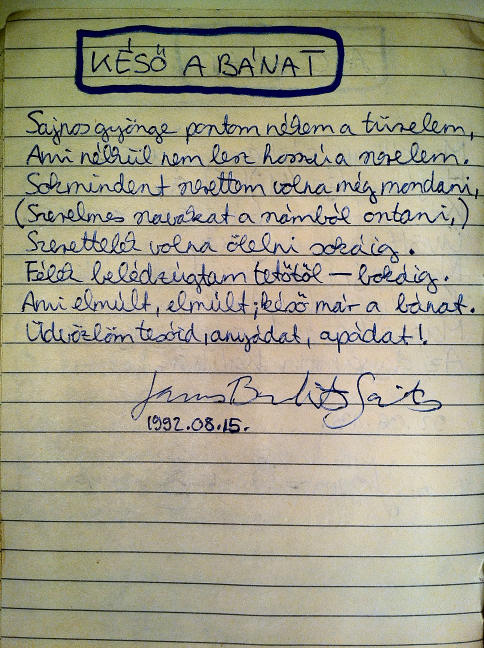 KÉSŐ A BÁNAT
Sajnos gyönge pontom nékem a türelem,
Ami nélkül nem lesz hosszú a szerelem.
Sokmindent szerettem volna még mondani,
(Szerelmes szavakat a számból ontani,)
Szerettelek volna ölelni sokáig.
Félek belédzúgtam tetőtől – bokáig.
Ami elmúlt, elmúlt; késő már a bánat.
Üdvözlöm tesóid, anyádat, apádat!
1992.08.15.